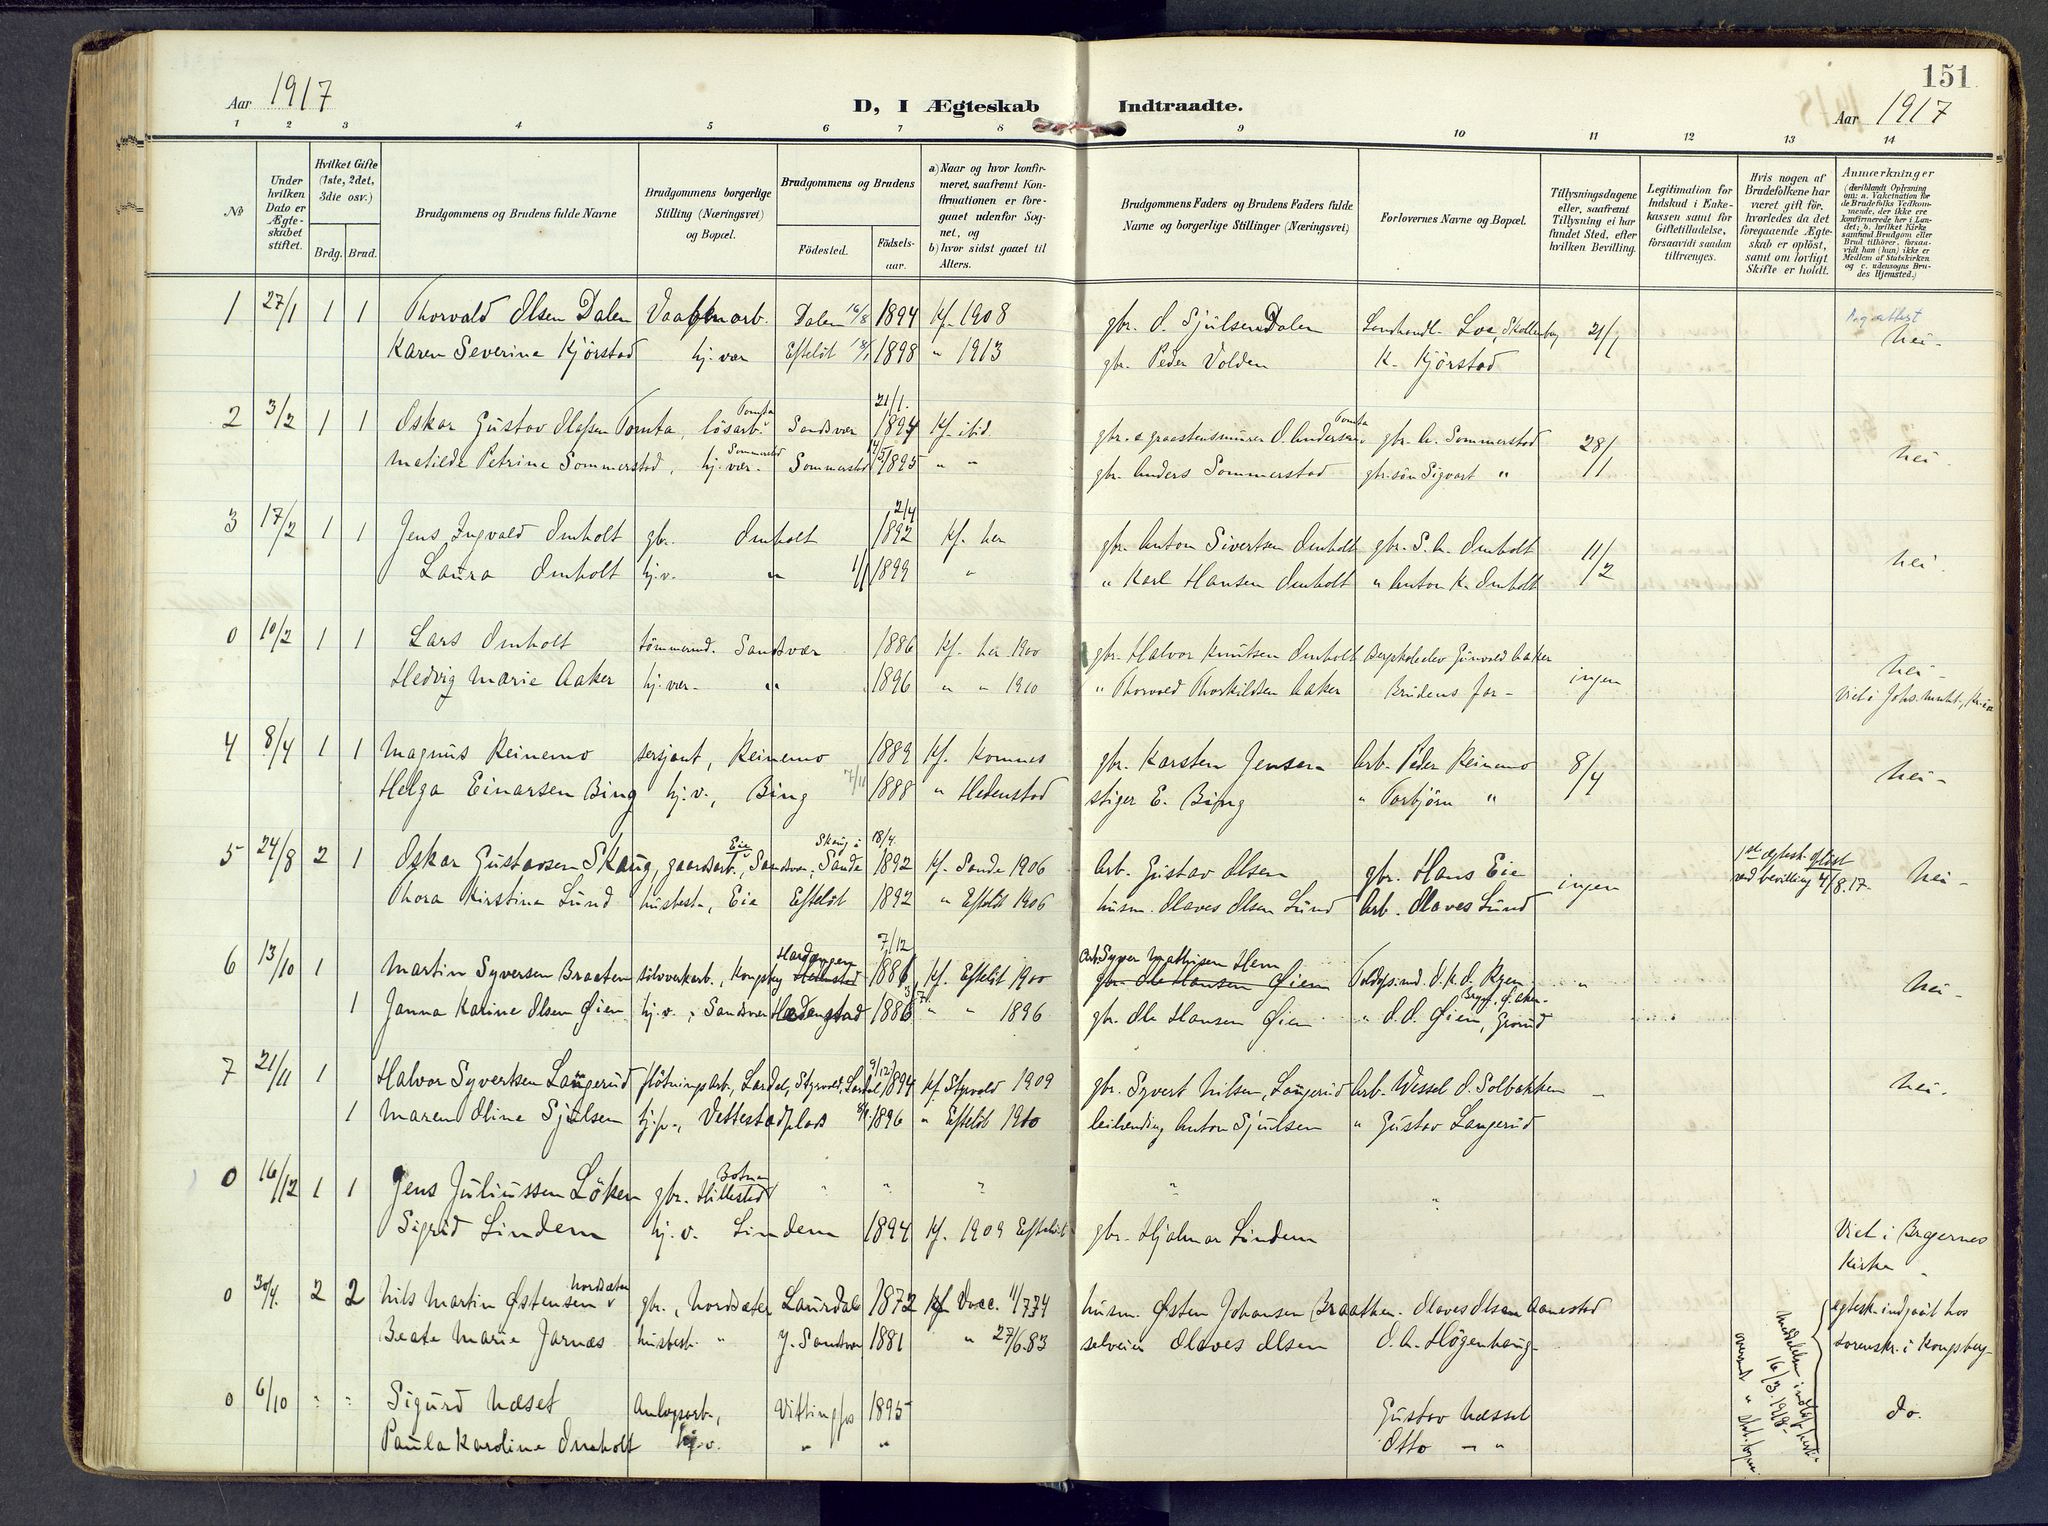 Aar 1917
D, I Ægteskab Indtraadte.
151
Aar 1917
1 2 3 4 5 6 7 8 9 10 11 12 13 14
№
Under hvilken Dato er Ægteskabet stiftet.
Hvilket Gifte (1ste, 2det, 3die osv.)
Brdg. Brud.
Brudgommens og Brudens fulde Navne
Brudgommens borgerlige Stilling (Næringsvei) og Bopæl.
Brudgommens og Brudens
Fødested. Fødselsaar.
a) Naar og hvor konfirmeret, saafremt Konfirmationen er foregaaet udenfor Sognet, og
b) hvor sidst gaaet til Alters.
Brudgommens Faders og Brudens Faders fulde Navne og borgerlige Stillinger (Næringsvei)
Forlovernes Navne og Bopæl.
Tillysningsdagene eller, saafremt Tillysning ei har fundet Sted, efter hvilken Bevilling.
Legitimation for Indskud i Enkekassen samt for Giftetilladelse, forsaavidt saadan tiltrænges.
Hvis nogen af Brudefolkene har været gift før, hvorledes da det foregaaende Ægteskab er opløst, samt om lovligt Skifte er holdt.
Anmærkninger
(deriblandt Oplysning om: a. Vakcination for de Brudefolks Vedkommende, der ikke ere konfirmerede her i Landet; b. hvilket Kirkesamfund Brudgom eller Brud tilhører, forsaavidt han (hun) ikke er Medlem af Statskirken og c. udensogns Brudes Hjemsted.)
1 27/1 1 1 Thorvald Olsen Dalen Dalen 16/8 1894 Kf. 1908 gbr. O. Sjulsen Dalen Landhandl. Loe, Skollenby 21/1 nei-
Karen Severine Kjörstad hj. vær Efteløt 1898 " 1913 gbr. Peder Volden K. Kjörstad
2 3/2 1 1 Oskar Gustav Olafsen Tomta, løsarb. Tomta Sandsvær 21/1. 1894 Kf. ibid. gbr. & graastensmurer O. Andersen Tomta gbr. A. Sommerstad 28/11 nei.
Matilde Petrine Sommerstad, hj. vær. Sommerstad Sommerstad 1895 " " gbr. Anders Sommerstad gbr. søn Sigvart "
3 17/2 1 1 Jens Ingvald Omholt gbr. Omholt 2/4 1892 Kf. her gbr. Anton Sivertsen Omholt gbr. S. A. Omholt 11/2 nei.
Laura Omholt hj.v. " 1/1 1899 " " Karl Hansen Omholt " Anton K. Omholt
0 10/2 1 1 Lars Omholt tømmerm. Sandsvær 1886 Kf. her 1900 gbr. Halvor Knutsen Omholt Bergskoleelev Gunvald Aaker ingen nei-
Hedvig Marie Aaker hj. vær- " 1896 " " 1910 " Thorvald Thorkildsen Aaker Brudens far- Viet i Johs. menh., Kr.ia
4 8/4 1 1 Magnus Reinemo sersjant, Reinemo 1889 Kf. Komnes gbr. Karsten Jensen Arb. Peder Reinemo 8/4 nei-
Helga Einarsen Bing hj.v., Bing 7/11 1888 " Hedenstad stiger E. Bing " Torbjörn "
5 24/8 2 1 Oskar Gustavsen Skaug, gaardsarb. Eie, Sandsvær. Skaug i Sande 18/4. 1892 Kf. Sande 1906 Arb. Gustav Olsen gbr. Hans Eie ingen 1ste ægtesk. opløst ved bevilling 4/8.17. nei-
Thora Kirstine Lund husbest., Eie Efteløt 1892 " Efteløt 1906 husm. Olaves Olsen Lund Arb. Olaves Lund
6 13/10 1 Martin Syversen Braaten sölvverkarb., Kongsberg Hedenstad 7/12 1881 Kf. Efteløt 1900 Arb. Syver Mathisen Hem Ole Hansen Øien O. K. O. Ryen " nei-
1 Janna Karine Olsen Øien hj.v., Sandsvær Hedenstad 1886 " " 1896 gbr. Ole Hansen Øien " O. O. Øien,
7 21/11 1 Halvor Syvertsen Langerud fløtningsarb., Lardal, Styrvold, Lardal 9/12 1894 Kf. Styrvold 1909 gbr. Syvert Nilsen, Langerud Arb. Wessel O. Solbakken - nei.
1 Maren Oline Sjulsen hj.p., Vettestadplads 1896 " Efteløt 1910 leilænding Anton Sjulsen " Gustav Langerud
0 16/12 1 1 Jens Juliussen Löken gbr. Hillestad Botne " " " " "
Sigrid Lindem hj.v. Lindem 1894 Kf. 1909 Efteløt gbr. Hjalmar Lindem Viet i Bragernes Kirke
0 30/4. 2 2 Nils Martin Østensen Nordsæter gbr., Nordsæter Laurdal 1872 Vacc. 11/7.74 husm. Østen Johansen Braathen. Olaves Olsen Aanestad ægtesk. indgaat hos
Beate Marie Jarnæs husbest. " Y. Sandsvær 1881 " 27/6.83 selveier Olaves Olsen O. A. Høgenhaug- sorenskr. i Kongsberg-
0 6/10 " " Sigurd Næset Anlægsarb., Vittingfos 1895 Gustav Næsset do.
Paula Karoline Omholt hj.v. " " Otto - "
16/3.1918-